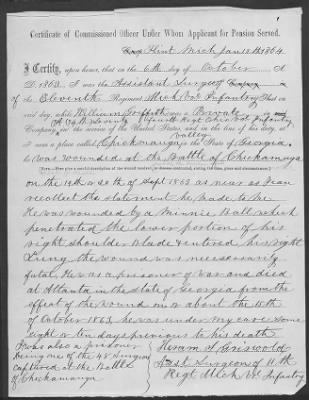 Certificate of Commissioned Officer Under Whom Applicant for Pension Served.
Flint Mich Jan 12th 1864
I Certify, upon honor, that on the 6th day of October A
D. 1863, I was the Assistant Surgeon
of the Eleventh Regiment Mich Vol Infantry that on
said day, while William Griffith was a Private in
Company, in the service of the United States, and in the line of his duty, at
valley
near a place called Chickamauga, in the State of Georgia,
he was wounded at the battle of Chickamauga
on the 19th or 20th of Sept 1863 as near as I can
recollect the statement he made to me
He was wounded by a Minnie Ball which
penetrated the lower portion of his
right shoulder blade & entered his right
Lung the wound was necessarily
fatal, He was a prisoner of war and died
at Atlanta in the state of Georgia from the
effect of the wound on or about the 15th
of October 1863, he was under my care some
eight or ten days previous to his death
I was also a prisoner
being one of the 48 Surgeons
captured at the Battle
of Chickamauga
Hiram A Griswold
Asst Surgeon of 11th
Regt Mich Vol Infantry